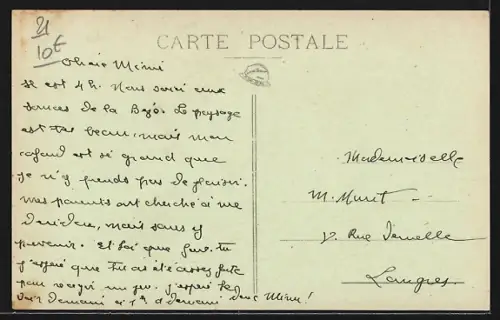 21
10€
CARTE POSTALE
Chère Mimi
Il est 4h. Nous voici aux
sources de la Bèze. Le paysage
est très beau, mais mon
cafard est si grand que
je n'y prends pas de plaisir.
mes parents ont cherché à me
dérider, mais sans y
parvenir. Et toi que fais-tu
j'espère que tu as été assez forte
pour un peu. j'espère te
voir demain et demain Mimi!
Mademoiselle
M. Muret
Rue
Langres